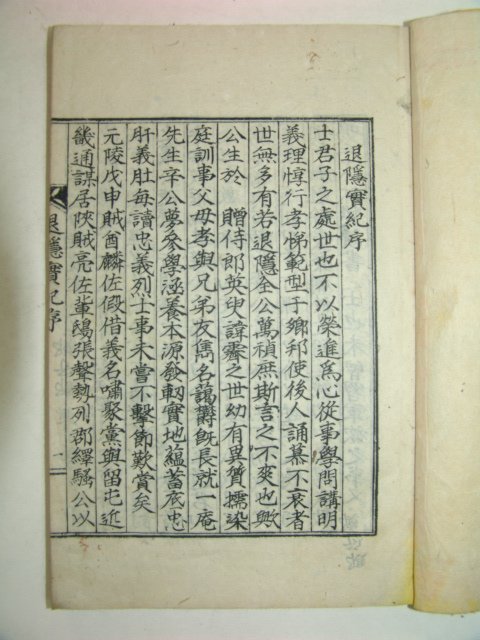 退隱實紀序
士君子之處世也不以榮進爲心從事學問講明
義理惇行孝悌範型于鄉邦使後人誦慕不衰者
世無多有若退隱全公萬禎庶斯言之不爽也歟
公生於 贈侍郎英叟諱霽之世幼有異質擩染
庭訓事父母孝與兄弟友雋名藹欝旣長就一庵
先生辛公夢參學涵養本源發軔實地蘊蓄底忠
肝義肚每讀忠義烈士事未嘗不擊節歎賞矣
元陵戊申賊酋麟佐假借義名嘯聚黨與留屯近
畿通謀居陜賊亮佐輩鴟張聲勢列郡繹騷公以
退隱實紀序
一